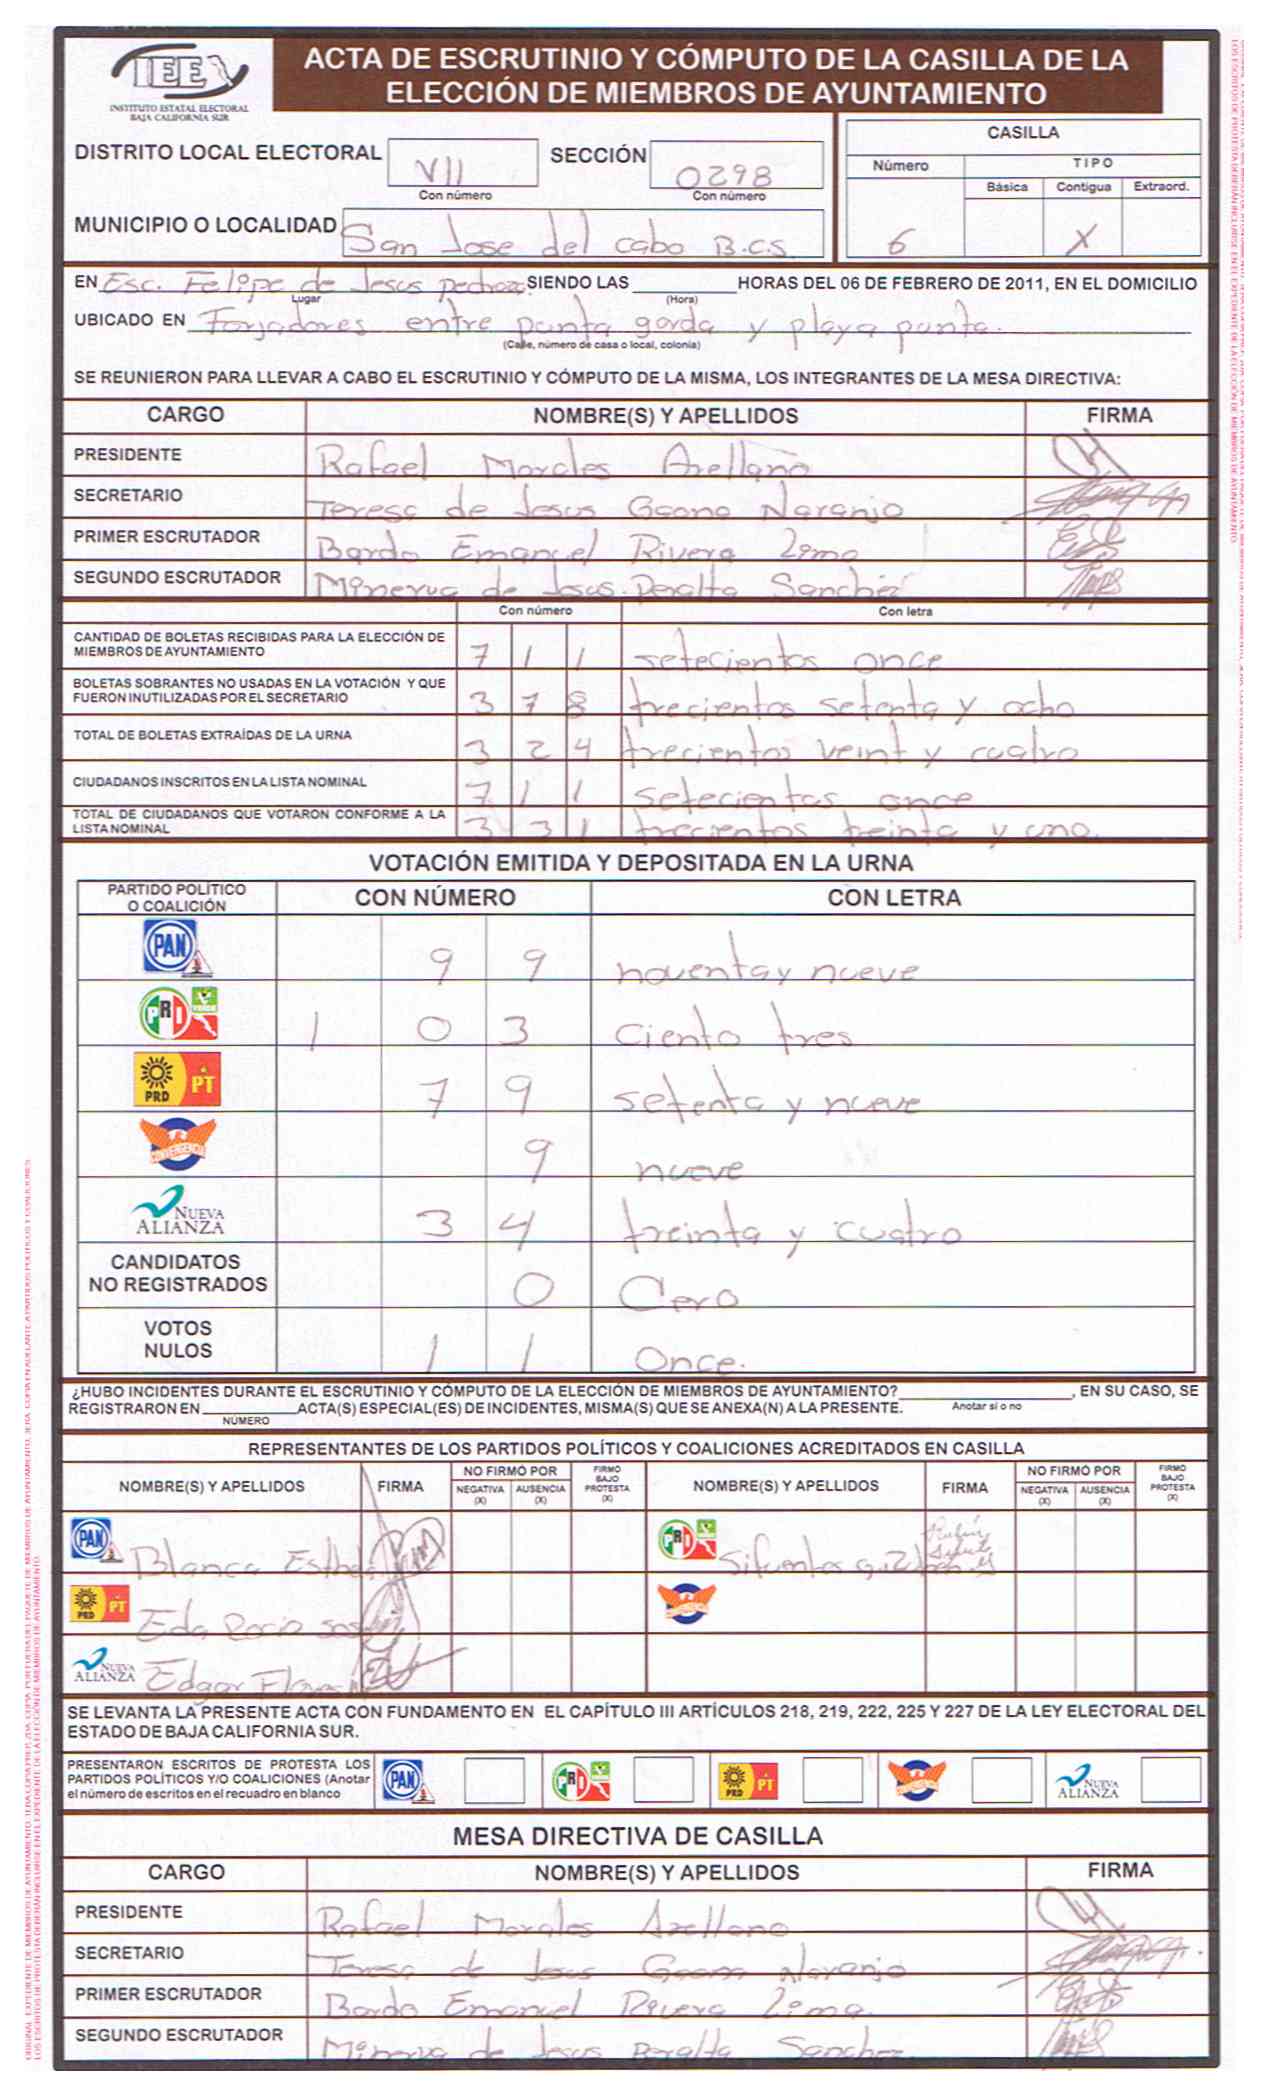 IEE
INSTITUTO ESTATAL ELECTORAL
BAJA CALIFORNIA SUR
ACTA DE ESCRUTINIO Y CÓMPUTO DE LA CASILLA DE LA
ELECCIÓN DE MIEMBROS DE AYUNTAMIENTO
DISTRITO LOCAL ELECTORAL VII SECCIÓN 0298
Con número Con número
MUNICIPIO O LOCALIDAD San Jose del cabo B.C.S.
CASILLA
Número TIPO
Básica Contigua Extraord.
6 X
EN Esc. Felipe de Jesus pedroza SIENDO LAS HORAS DEL 06 DE FEBRERO DE 2011, EN EL DOMICILIO
Lugar (Hora)
UBICADO EN Forjadores entre punta gorda y playa punta.
(Calle, número de casa o local, colonia)
SE REUNIERON PARA LLEVAR A CABO EL ESCRUTINIO Y CÓMPUTO DE LA MISMA, LOS INTEGRANTES DE LA MESA DIRECTIVA:
CARGO NOMBRE(S) Y APELLIDOS FIRMA
PRESIDENTE Rafael Morales Arellano
SECRETARIO Teresa de Jesus Gaona Naranjo
PRIMER ESCRUTADOR Bardo Emanuel Rivera Lima
SEGUNDO ESCRUTADOR Minerva de Jesus Peralta Sanchez
Con número Con letra
CANTIDAD DE BOLETAS RECIBIDAS PARA LA ELECCIÓN DE
MIEMBROS DE AYUNTAMIENTO 7 1 1 setecientos once
BOLETAS SOBRANTES NO USADAS EN LA VOTACIÓN Y QUE
FUERON INUTILIZADAS POR EL SECRETARIO 3 7 8 trecientos setenta y ocho
TOTAL DE BOLETAS EXTRAÍDAS DE LA URNA 3 2 4 trecientos veint y cuatro
CIUDADANOS INSCRITOS EN LA LISTA NOMINAL 7 1 1 setecientos once
TOTAL DE CIUDADANOS QUE VOTARON CONFORME A LA
LISTA NOMINAL 3 3 1 trecientos treinta y uno.
VOTACIÓN EMITIDA Y DEPOSITADA EN LA URNA
PARTIDO POLÍTICO
O COALICIÓN CON NÚMERO CON LETRA
PAN 9 9 noventa y nueve
PRI VERDE 1 0 3 ciento tres
PRD PT 7 9 setenta y nueve
CONVERGENCIA 9 nueve
NUEVA ALIANZA 3 4 treinta y cuatro
CANDIDATOS
NO REGISTRADOS 0 Cero
VOTOS
NULOS 1 1 Once.
¿HUBO INCIDENTES DURANTE EL ESCRUTINIO Y CÓMPUTO DE LA ELECCIÓN DE MIEMBROS DE AYUNTAMIENTO? , EN SU CASO, SE
REGISTRARON EN ACTA(S) ESPECIAL(ES) DE INCIDENTES, MISMA(S) QUE SE ANEXA(N) A LA PRESENTE. Anotar si o no
NÚMERO
REPRESENTANTES DE LOS PARTIDOS POLÍTICOS Y COALICIONES ACREDITADOS EN CASILLA
NOMBRE(S) Y APELLIDOS FIRMA NO FIRMÓ POR NEGATIVA (X) AUSENCIA (X) FIRMÓ BAJO PROTESTA (X) NOMBRE(S) Y APELLIDOS FIRMA NO FIRMÓ POR NEGATIVA (X) AUSENCIA (X) FIRMÓ BAJO PROTESTA (X)
PAN Blanca Esthe PRI Sifuentes
PRD PT Eda Rocio sos
NUEVA ALIANZA Edgar Flores
SE LEVANTA LA PRESENTE ACTA CON FUNDAMENTO EN EL CAPÍTULO III ARTÍCULOS 218, 219, 222, 225 Y 227 DE LA LEY ELECTORAL DEL
ESTADO DE BAJA CALIFORNIA SUR.
PRESENTARON ESCRITOS DE PROTESTA LOS
PARTIDOS POLÍTICOS Y/O COALICIONES (Anotar
el número de escritos en el recuadro en blanco
PAN PRI PRD PT NUEVA ALIANZA
MESA DIRECTIVA DE CASILLA
CARGO NOMBRE(S) Y APELLIDOS FIRMA
PRESIDENTE Rafael Morales Arellano
SECRETARIO Teresa de Jesus Gaona Naranjo
PRIMER ESCRUTADOR Bardo Emanuel Rivera Lima.
SEGUNDO ESCRUTADOR Minerva de Jesus Peralta Sanchez.